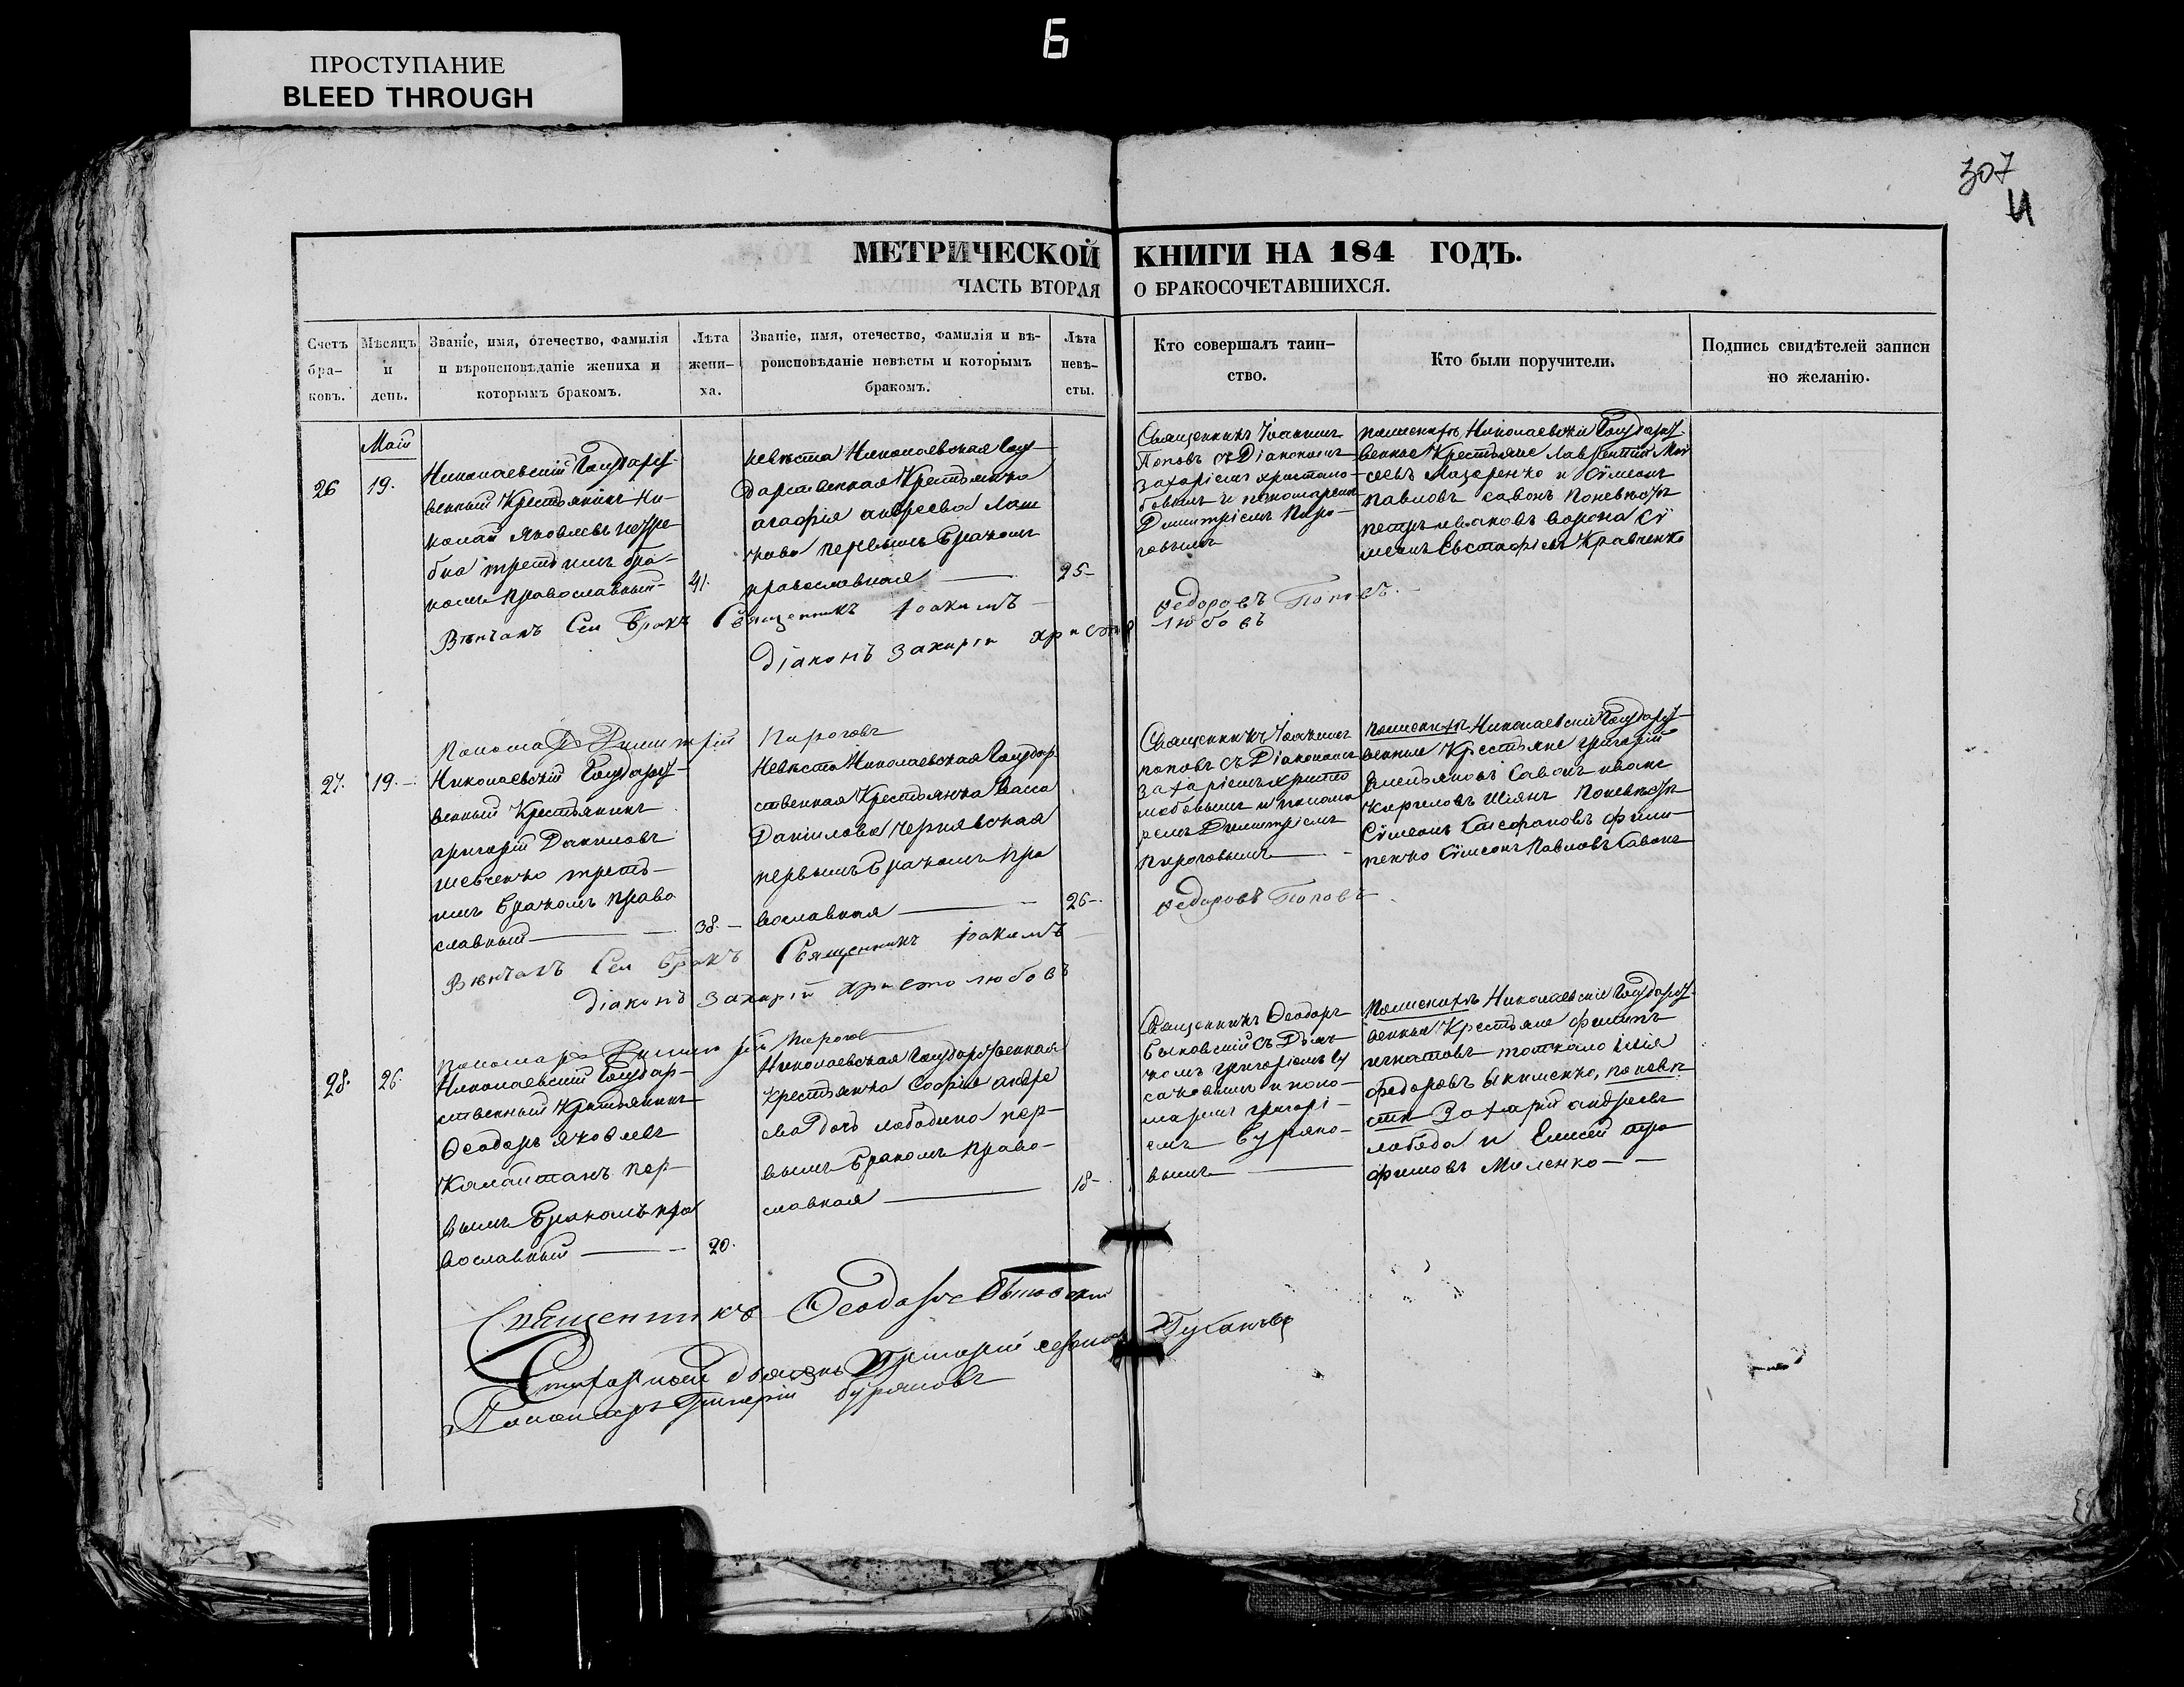 Б
ПРОСТУПАНИЕ
BLEED THROUGH
307
МЕТРИЧЕСКОЙ КНИГИ НА 184 ГОДЪ.
ЧАСТЬ ВТОРАЯ О БРАКОСОЧЕТАВШИХСЯ.
Счетъ
бра-
ковъ.
Мѣсяцъ
и
день.
Званіе, имя, отечество, фамилія
и вѣроисповѣданіе жениха и
которымъ бракомъ.
Лѣта
жени-
ха.
Званіе, имя, отечество, фамилія и вѣ-
роисповѣданіе невѣсты и которымъ
бракомъ.
Лѣта
невѣ-
сты.
Кто совершалъ таин-
ство.
Кто были поручители.
Подпись свидѣтелей записи
по желанію.
26
Маій
19.
Николаевскій Государст-
венный Крестьянинъ Ни-
колай Яковлевъ
третьимъ бра-
комъ православный
41.
невѣста Николаевская Госу-
дарственная Крестьянка
агафія андреева
первымъ бракомъ
православная
25-
Священникъ Іоакимъ
Поповъ съ Діакономъ
Захаріемъ христолю-
бовымъ и пономаремъ
Димитріемъ Пиро-
говымъ
Николаевскіе Государст-
венные Крестьяне Лаврентій Мои
сеевъ Назаренко и Сѵмеонъ
павловъ савонъ Поневѣстѣ
петръ ивановъ ворона Сѵ
меонъ Евстафіевъ Кравченко
Вѣнчалъ Сей бракъ Священникъ Іоакимъ Федоровъ Поповъ.
Діаконъ Захарій христолюбовъ
Пономарь Димитрій Пироговъ
27.
19.
Николаевскій Государст-
венный Крестьянинъ
григорій Даниловъ
шевченко треть-
имъ бракомъ право
славный
38.
Невѣста Николаевская Государ
ственная Крестьянка Васса
Даніилова Чернявская
первымъ бракомъ пра
вославная
26-
Священникъ Іоакимъ
поповъ съ Діакономъ
Захаріемъ христо
любовымъ и понома
ремъ Димитріемъ
Пироговымъ
Николаевскіе Государст-
венные Крестьяне григорій
Емельяновъ Савонъ иванъ
Кириловъ Шіянъ Поневѣстѣ
Сѵмеонъ фили-
пенко Сѵмеонъ Павловъ Савонъ
Вѣнчалъ Сей бракъ Священникъ Іоакимъ Федоровъ Поповъ
Діаконъ Захарій христолюбовъ
Пономарь Димитрій Пироговъ
28.
26.
Николаевскій Государ-
ственный Крестьянинъ
Ѳеодоръ Яковлевъ
Калайтанъ пер-
вымъ бракомъ пра
вославный
20.
Николаевская Государственная
Крестьянка Софія андре
ева дочь лободина пер-
вымъ бракомъ Право-
славная
18-
Священникъ Ѳеодоръ
Быковскій съ Діако-
номъ григоріемъ Гу
саковымъ и поно-
маремъ григорі-
емъ Буряко-
вымъ
Николаевскіе Государст-
венные Крестьяне филипъ
игнатовъ илія
федоровъ якименко, поневѣ
стѣ Захарій андреевъ
лобода и Елисей тро
фимовъ Миленко
Священникъ Ѳеодоръ Быковскій
Діаконъ Григорій Гусаковъ
Пономарь Григорій Буряковъ